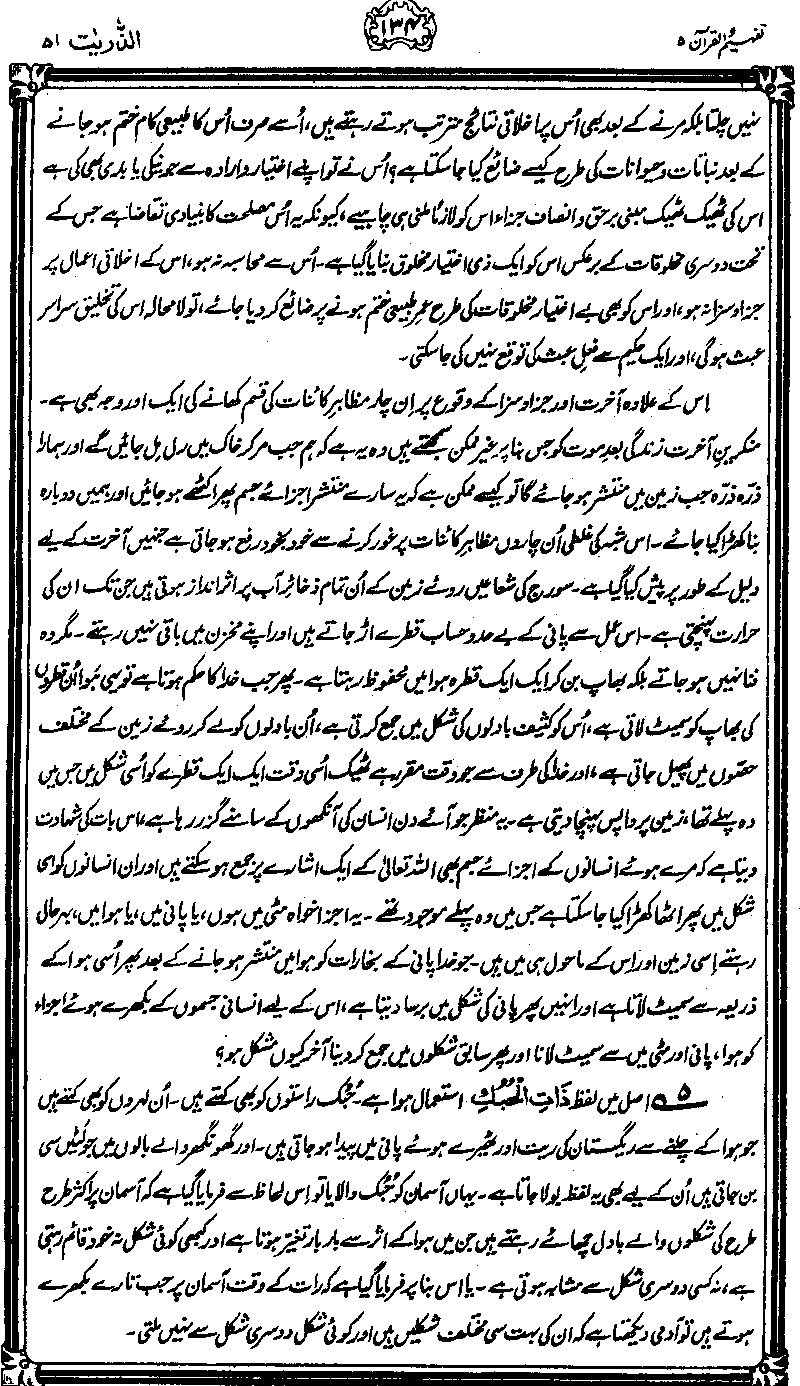 تفہیم القرآن ۵
۱۳۴
الذّٰریٰت ۵۱
نہیں چلتا بلکہ مرنے کے بعد بھی اُس پر اخلاقی نتائج مترتب ہوتے رہتے ہیں، اُسے صرف اُس کا طبیعی کام ختم ہو جانے
کے بعد نباتات و حیوانات کی طرح کیسے ضائع کیا جا سکتا ہے؟ اُس نے تو اپنے اختیار و ارادہ سے جو نیکی یا بدی بھی کی ہے
اس کی ٹھیک ٹھیک مبنی بر حق و انصاف جزاء اس کو لازماً ملنی ہی چاہیے، کیونکہ یہ اُس مصلحت کا بنیادی تقاضا ہے جس کے
تحت دوسری مخلوقات کے برعکس اس کو ایک ذی اختیار مخلوق بنایا گیا ہے۔ اُس سے محاسبہ نہ ہو، اس کے اخلاقی اعمال پر
جزا و سزا نہ ہو، اور اس کو بھی بے اختیار مخلوقات کی طرح عمرِ طبیعی ختم ہونے پر ضائع کر دیا جائے، تو لامحالہ اس کی تخلیق سراسر
عبث ہوگی، اور ایک حکیم سے فعلِ عبث کی توقع نہیں کی جا سکتی۔
اِس کے علاوہ آخرت اور جزا و سزا کے وقوع پر اِن چار مظاہرِ کائنات کی قسم کھانے کی ایک اور وجہ بھی ہے۔
منکرینِ آخرت زندگی بعدِ موت کو جس بنا پر غیر ممکن سمجھتے ہیں وہ یہ ہے کہ ہم جب مر کر خاک میں رل مل جائیں گے اور ہمارا
ذرّہ ذرّہ جب زمین میں منتشر ہو جائے گا تو کیسے ممکن ہے کہ یہ سارے منتشر اجزائے جسم پھر اکٹھے ہو جائیں اور ہمیں دوبارہ
بنا کھڑا کیا جائے۔ اس شبہ کی غلطی اُن چاروں مظاہرِ کائنات پر غور کرنے سے خود بخود رفع ہو جاتی ہے جنہیں آخرت کے لیے
دلیل کے طور پر پیش کیا گیا ہے۔ سورج کی شعاعیں روئے زمین کے اُن تمام ذخائرِ آب پر اثر انداز ہوتی ہیں جن تک ان کی
حرارت پہنچتی ہے۔ اس عمل سے پانی کے بے حد و حساب قطرے اڑ جاتے ہیں اور اپنے مخزن میں باقی نہیں رہتے۔ مگر وہ
فنا نہیں ہو جاتے بلکہ بھاپ بن کر ایک ایک قطرہ ہوا میں محفوظ رہتا ہے۔ پھر جب خدا کا حکم ہوتا ہے تو یہی ہوا اُن قطروں
کی بھاپ کو سمیٹ لاتی ہے، اُس کو کثیف بادلوں کی شکل میں جمع کرتی ہے، اُن بادلوں کو لے کر روئے زمین کے مختلف
حصّوں میں پھیل جاتی ہے، اور خدا کی طرف سے جو وقت مقرر ہے ٹھیک اُسی وقت ایک ایک قطرے کو اُسی شکل میں جس میں
وہ پہلے تھا، زمین پر واپس پہنچا دیتی ہے۔ یہ منظر جو آئے دن انسان کی آنکھوں کے سامنے گزر رہا ہے، اس بات کی شہادت
دیتا ہے کہ مرے ہوئے انسانوں کے اجزائے جسم بھی اللہ تعالیٰ کے ایک اشارے پر جمع ہو سکتے ہیں اور ان انسانوں کو اسی
شکل میں پھر اٹھا کھڑا کیا جا سکتا ہے جس میں وہ پہلے موجود تھے۔ یہ اجزا خواہ مٹی میں ہوں، یا پانی میں، یا ہوا میں، بہرحال
رہتے اِسی زمین اور اس کے ماحول ہی میں ہیں۔ جو خدا پانی کے بخارات کو ہوا میں منتشر ہو جانے کے بعد پھر اُسی ہوا کے
ذریعہ سے سمیٹ لاتا ہے اور انہیں پھر پانی کی شکل میں برسا دیتا ہے، اس کے لیے انسانی جسموں کے بکھرے ہوئے اجزاء
کو ہوا، پانی اور مٹی میں سے سمیٹ لانا اور پھر سابق شکلوں میں جمع کر دینا آخر کیوں مشکل ہو؟
۵ اصل میں لفظ ذَاتِ الْحُبُكِ استعمال ہوا ہے۔ حُبُک راستوں کو بھی کہتے ہیں۔ اُن لہروں کو بھی کہتے ہیں
جو ہوا کے چلنے سے ریگستان کی ریت اور ٹھیرے ہوئے پانی میں پیدا ہو جاتی ہیں۔ اور گھونگھر والے بالوں میں جو لٹیں سی
بن جاتی ہیں اُن کے لیے بھی یہ لفظ بولا جاتا ہے۔ یہاں آسمان کو حُبُک والا یا تو اِس لحاظ سے فرمایا گیا ہے کہ آسمان پر اکثر طرح
طرح کی شکلوں والے بادل چھائے رہتے ہیں جن میں ہوا کے اثر سے بار بار تغیر ہوتا ہے اور کبھی کوئی شکل نہ خود قائم رہتی
ہے، نہ کسی دوسری شکل سے مشابہ ہوتی ہے۔ یا اس بنا پر فرمایا گیا ہے کہ رات کے وقت آسمان پر جب تارے بکھرے
ہوتے ہیں تو آدمی دیکھتا ہے کہ ان کی بہت سی مختلف شکلیں ہیں اور کوئی شکل دوسری شکل سے نہیں ملتی۔